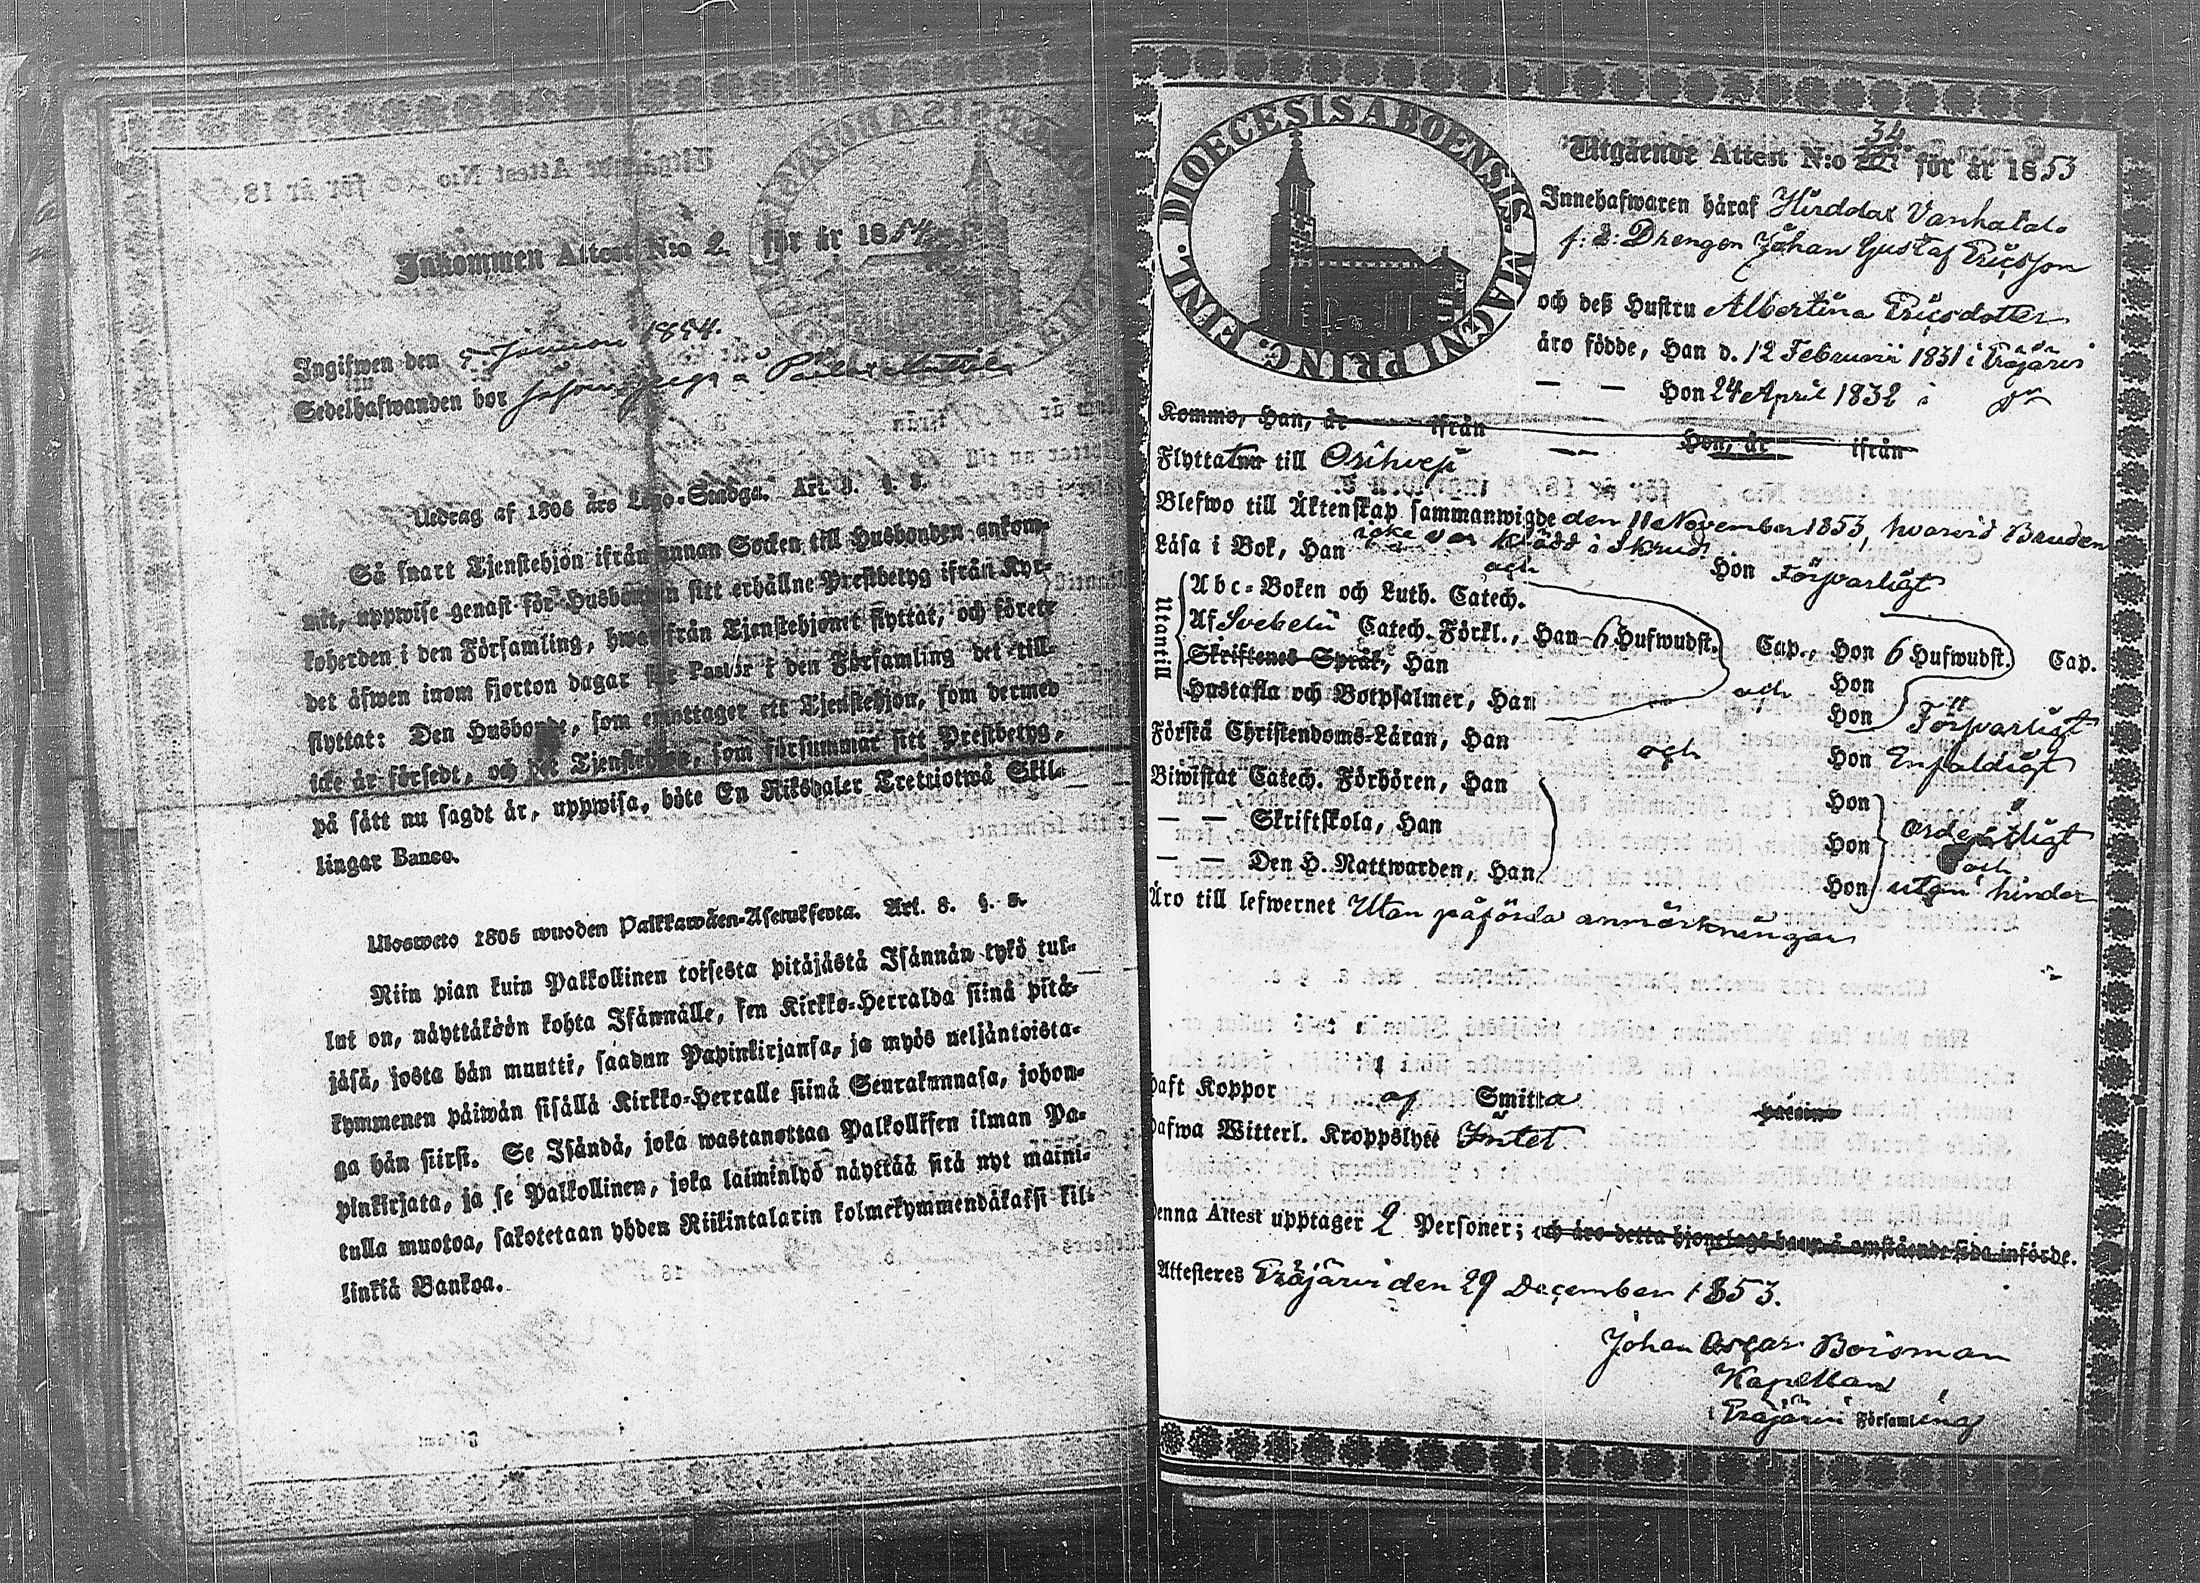 Inkommen Attest N:o 2. för år 1854
Ingifwen den 5 Januari 1854.
Sedelhafwanden bor
Utdrag af 1805 års Lego-Stadga. Art. 8. §. 8.
Så snart Tjenstehjon ifrån annan Socken till Husbonden ankom-
mit, uppwise genast för Husbonden sitt erhållne Prestbetyg ifrån Kyr-
koherden i den Församling, hwarifrån Tjenstehjonet flyttat, och förete
det äfwen inom fjorton dagar för Pastor i den Församling det till-
flyttat: Den Husbonde, som emottager ett Tjenstehjon, som dermed
icke är försedt, och det Tjenstehjon, som försummar sitt Prestbetyg,
på sätt nu sagdt är, uppwisa, böte En Riksdaler Trettiotwå Skil-
lingar Banco.
Ulosweto 1805 wuoden Palkkawäen-Asetuksesta. Art. 8. §. 8.
Niin pian kuin Palkollinen toisesta pitäjästä Isännän tykö tul-
lut on, näyttäköön kohta Isännälle, sen Kirkko-Herralda siinä pitä-
jäsä, josta hän muutti, saadun Papinkirjansa, ja myös neljäntoista-
kymmenen päiwän sisällä Kirkko-Herralle siinä Seurakunnasa, johon-
ga hän siirsi. Se Isändä, joka wastanottaa Palkollisen ilman Pa-
pinkirjata, ja se Palkollinen, joka laiminlyö näyttää sitä nyt maini-
tulla muotoa, sakotetaan yhden Riikintalarin kolmekymmendäkaksi kil-
linkiä Bankoa.
DIOECESIS ABOENSIS. MAGNI PRINC. FINL.
Utgående Attest N:o 34 för år 1853
Innehafwaren häraf Hirddax Vanhatalo
f: d: Drengen Johan Gustaf Ericsson
och deß Hustru Albertina Ericsdotter
äro födde, Han d. 12 Februarii 1831 i Eräjärvi
— — Hon 24 April 1832 i do
Kommo, Han, år ifrån Hon, år ifrån
Flyttat till Orihvesi
Blefwo till Äktenskap sammanwigde den 11e November 1853, hvarvid Bruden
icke var klädd i skrud
Läsa i Bok, Han och Hon Försvarligt
Utantill
Abc-Boken och Luth. Catech.
Af Svebelii Catech. Förkl., Han 6 Hufwudst. Cap., Hon 6 Hufwudst. Cap.
Skriftenes Språk, Han Hon
Hustafla och Botpsalmer, Han och Hon Försvarligt
Förstå Christendoms-Läran, Han och Hon Enfaldigt
Biwistat Catech. Förhören, Han Hon
— — Skriftskola, Han Hon ordentligt
och
— — Den H. Nattwarden, Han Hon utan hinder
Äro till lefwernet Utan påförda anmärkningar
haft Koppor af Smitta
hafwa Witterl. Kroppslyte Intet.
Denna Attest upptager 2 Personer; och äro detta hjonelags barn å omstående sida införde.
Attesteres Eräjärvi den 29 December 1853.
Johan Oscar Boisman
Kapellan
i Eräjärvi Församling